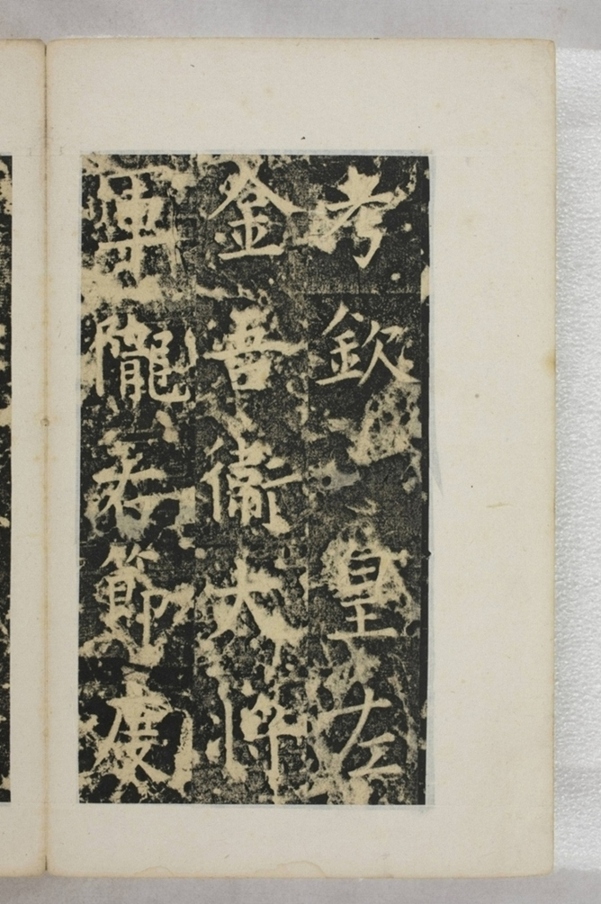 考欽皇左
金吾衛大將
軍隴右節度